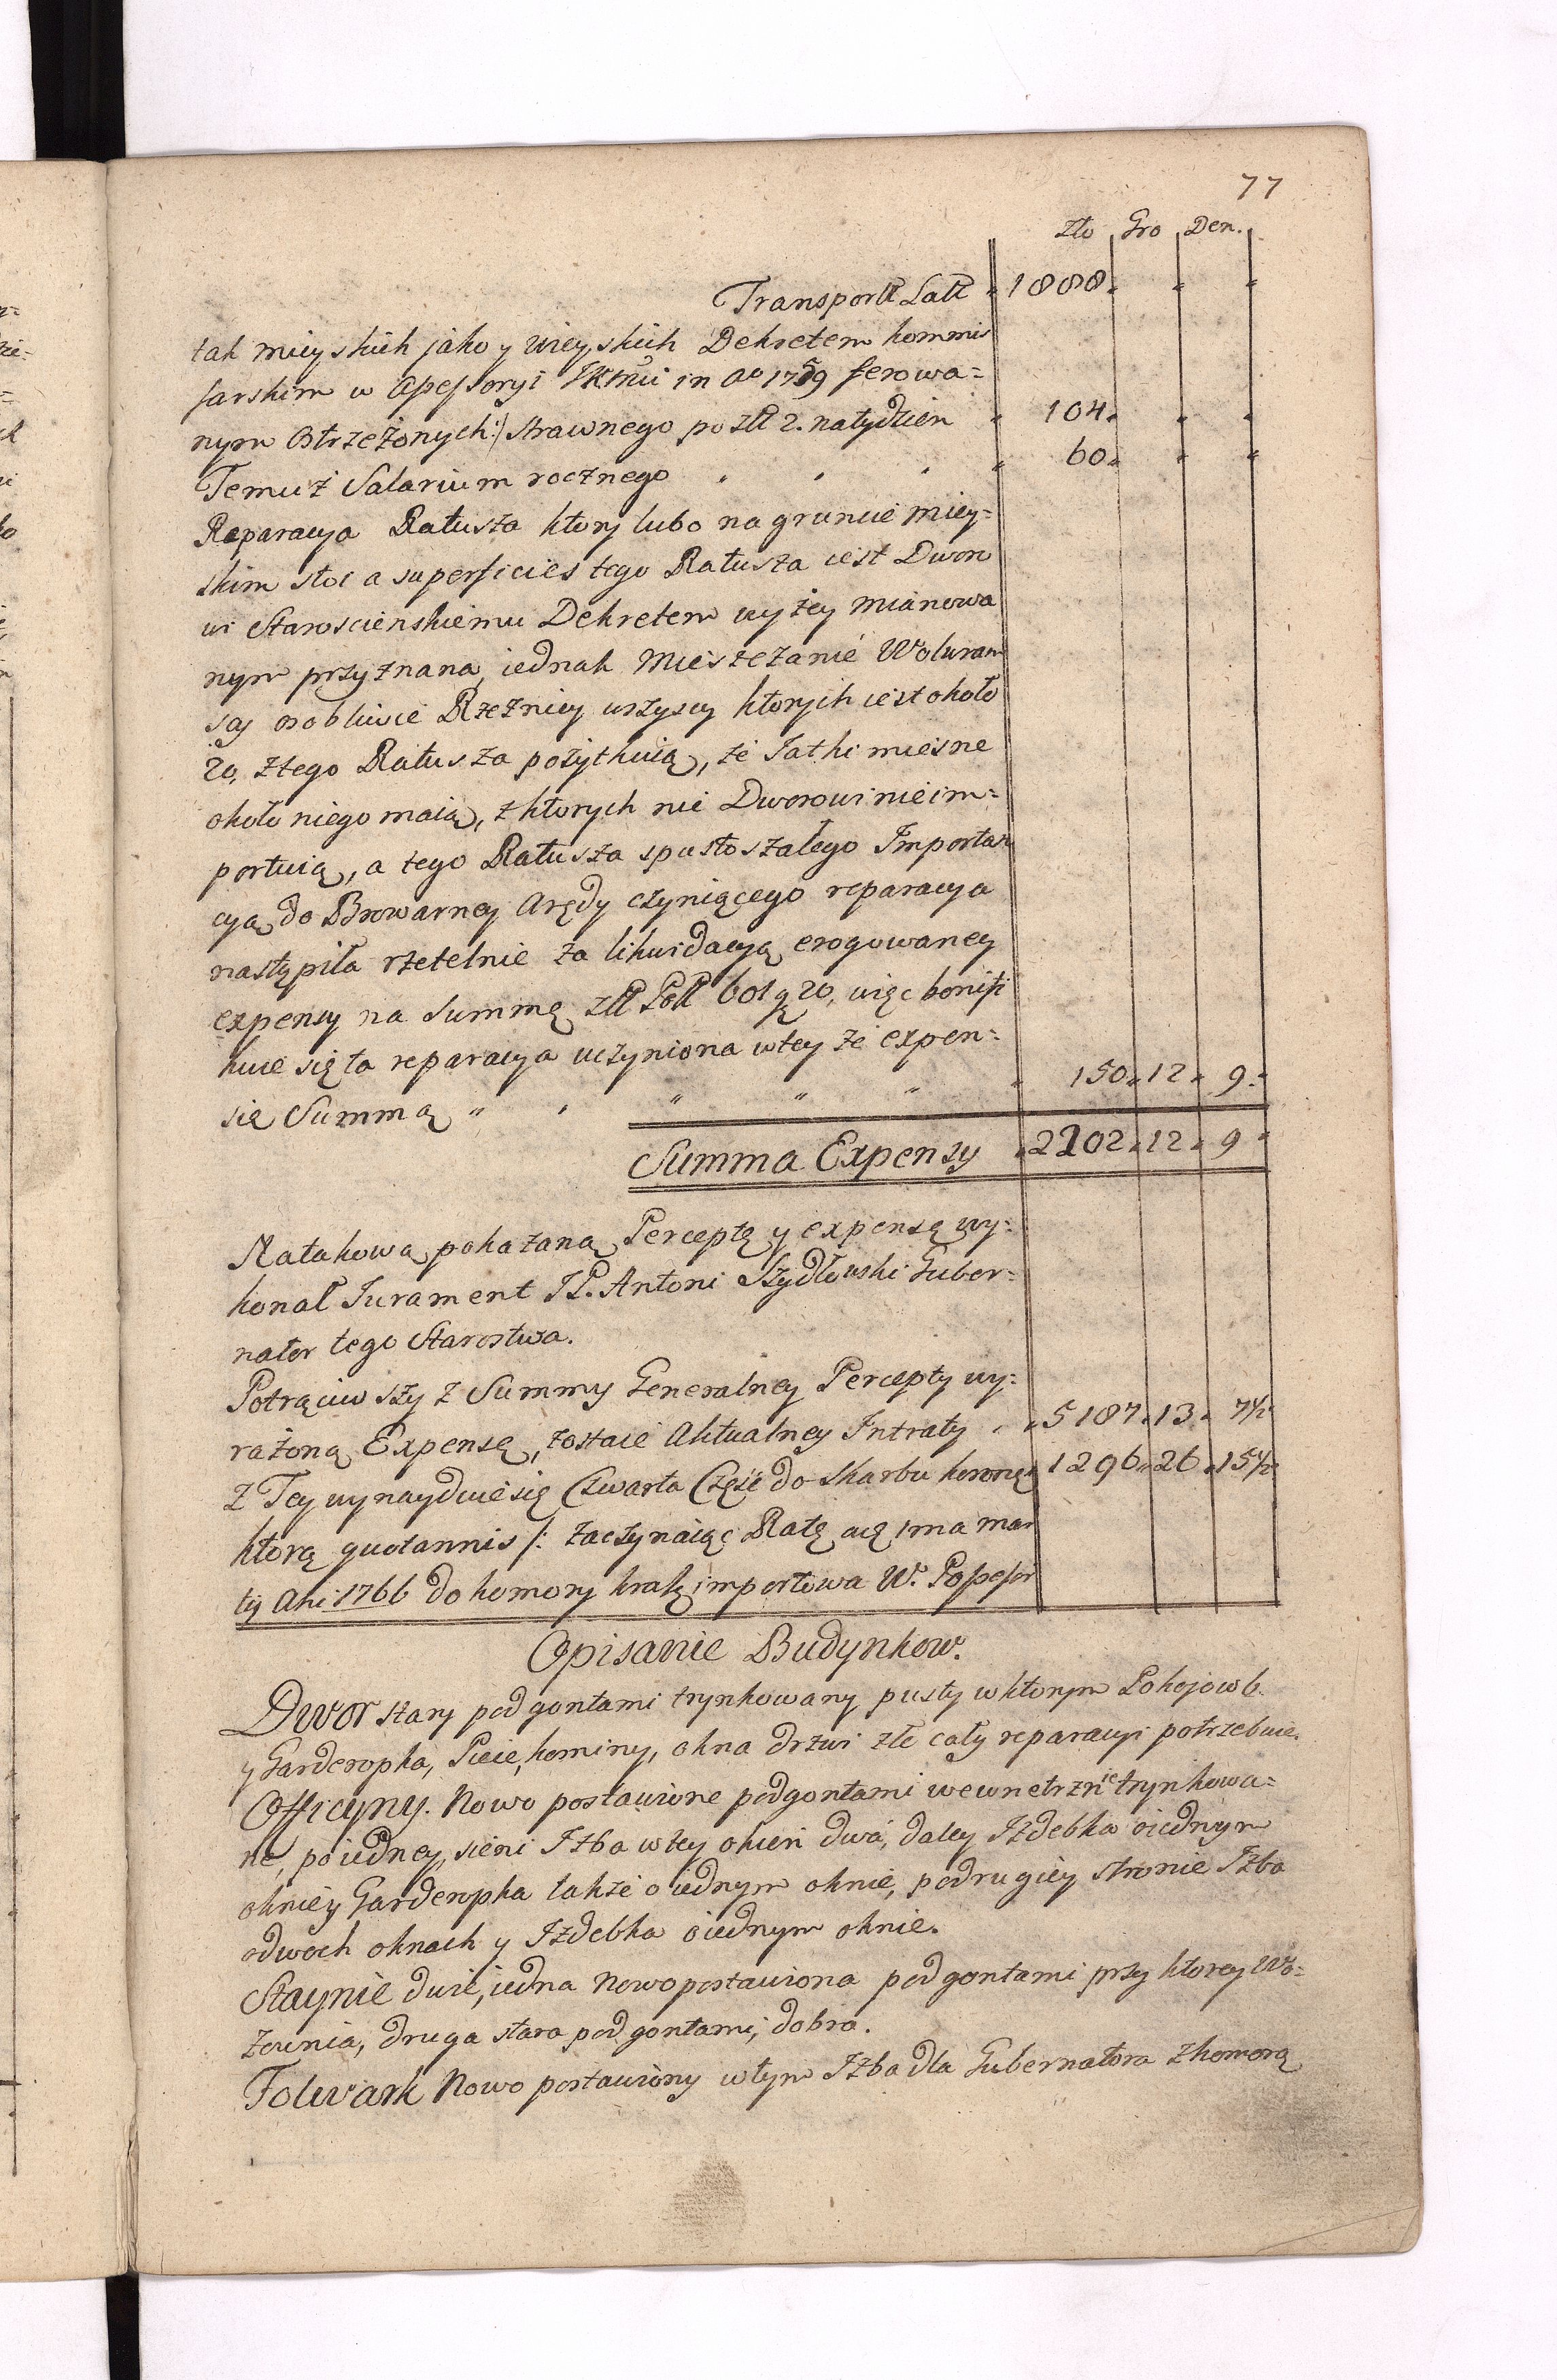 77
Zło Gro Den.
Transport Lat 1888
tak mieyskich jako y wieyskich Dekretem kommis
sarskim w Assessoryi in Ao 1759 ferowa=
nym ostrzeżonych:/ strawnego po Zł 2. na tydzień 104
Temuż Salarium rocznego 60
Reparacya Ratusza ktory lubo na gruncie miey=
skim stoi a superficies tego Ratusza iest Dworo
wi Starościenskiemu Dekretem wyżey mianowa
nym przyznana, iednak Mieszczanie Wolwram
scy osobliwie Rzeznicy wszyscy ktorych iest około
20, z tego Ratusza pożytkuią, że Jatki mięsne
około niego maią, z ktorych nic Dworowi nie im=
portuią, a tego Ratusza spustoszałego Importan
cyą do Browarney Arędy czyniącego reparacya
nastąpiła rzetelnie za likwidacyą erogowaney
expensy na Summę Zł Pol 601 g 20, więc bonifi
kuie się ta reparacya uczyniona w tey że expen=
sie Summą 150 12 9
Summa Expensy 2202 12 9
Na takową pokazaną Perceptę y expensę wy=
konał Jurament JP. Antoni Szydłowski Guber=
nator tego Starostwa.
Potrąciwszy z Summy Generalney Percepty wy=
rażoną Expensę, zostaie Aktualney Intraty 5187 13 7½
Z Tey wynayduie się Czwarta Część do Skarbu koronn 1296 26 15½
ktorą quotannis /: zaczynaiąc Ratę a 1ma mar
tij Ani 1766 do komory kralę importowa W. Possessor
Opisanie Budynkow.
Dwor stary pod gontami tynkowany pusty w ktorym Pokojow 6.
y Garderopka, Piece, kominy, okna drzwi złe cały reparacyi potrzebuie.
Officyny. Nowo postawione pod gontami wewnetrznie trynkowa=
ne, po iedney sieni Izba w tey okien dwa, daley Izdebka o iednym
oknie y Garderopka także o iednym oknie, po drugiey stronie Izba
o dwoch oknach y Izdebka o iednym oknie.
Staynie dwie, iedna Nowo postawiona pod gontami przy ktorey Wo=
zownia, druga stara pod gontami, dobra.
Folwark Nowo postawiony w tym Izba dla Gubernatora z komorą